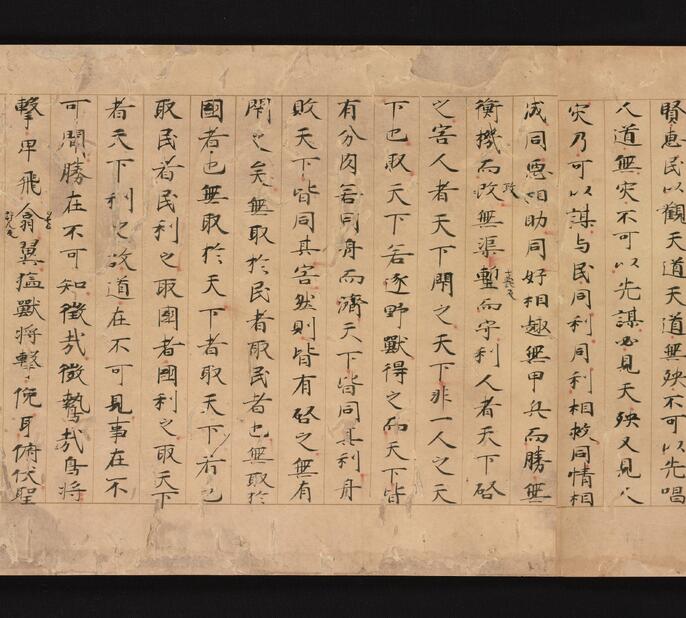 賢惠民以觀天道天道無殃不可以先唱
人道無灾不可以先謀必見天殃又見人
灾乃可以謀与民同利同利相救同情相
成同惡相助同好相趣無甲兵而勝無
衡機而攻無渠塹而守利人者天下啓
之害人者天下閇之天下非一人之天
下也取天下若逐野獸得之而天下皆
有分肉若同舟而濟天下皆同其利舟
敗天下皆同其害然則皆有啓之無有
閇之矣無取於民者取民者也無取於
國者也無取於天下者取天下者也
取民者民利之取國者國利之取天下
者天下利之故道在不可見事在不
可聞勝在不可知微哉微鷙哉鳥將
擊卑飛翕翼猛獸將擊俛身俯伏聖